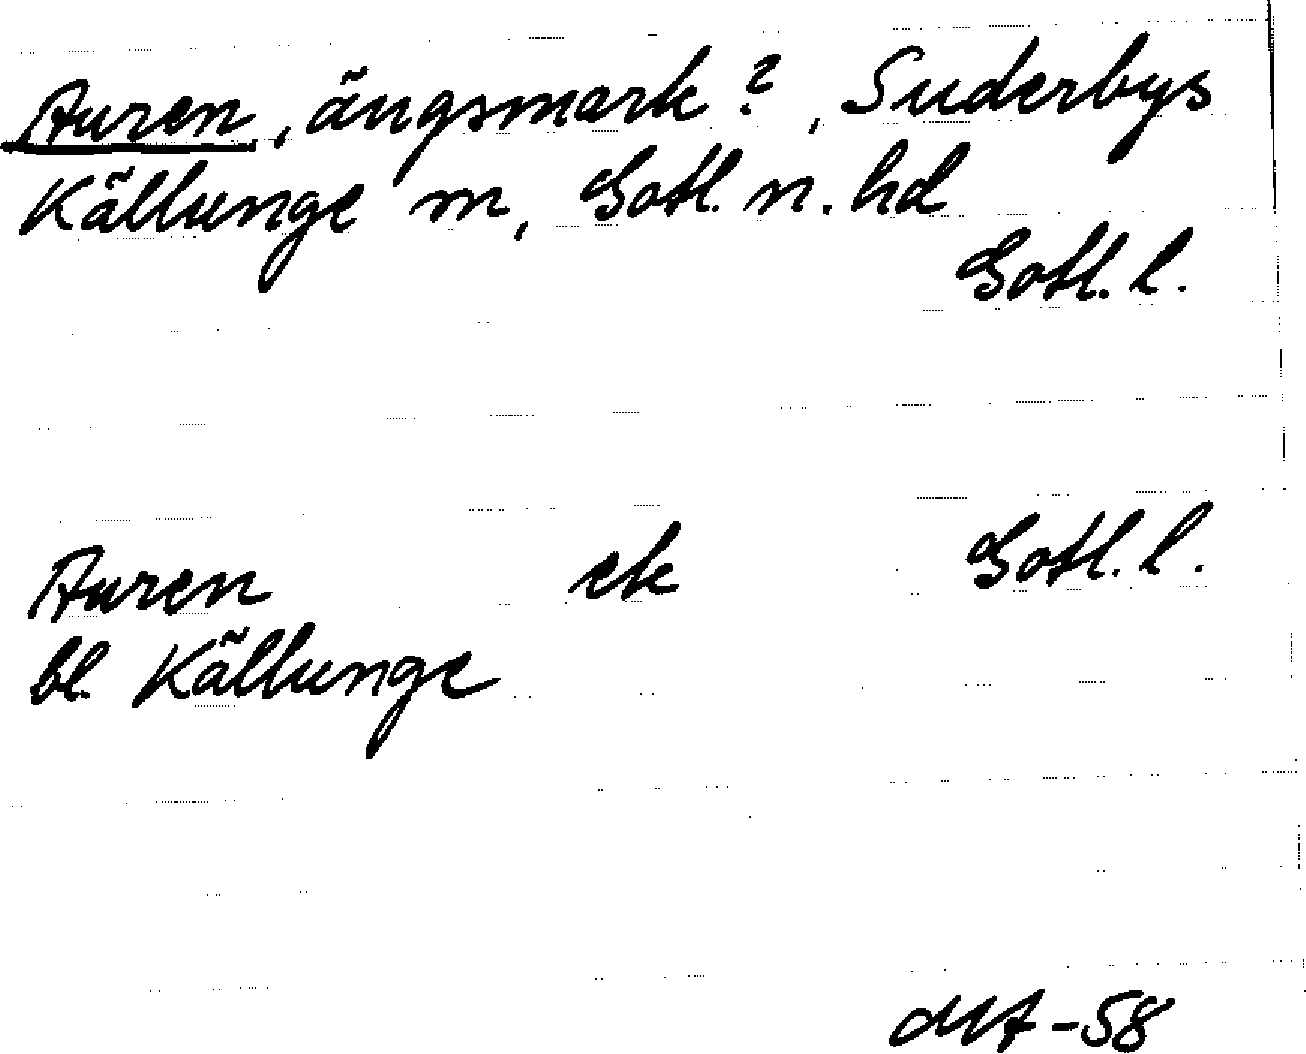 Auren, ängsmark?, Suderbys
Källunge m, Gotl. n. hd
Gotl. l.
Auren ek Gotl. l.
bl. Källunge
-58